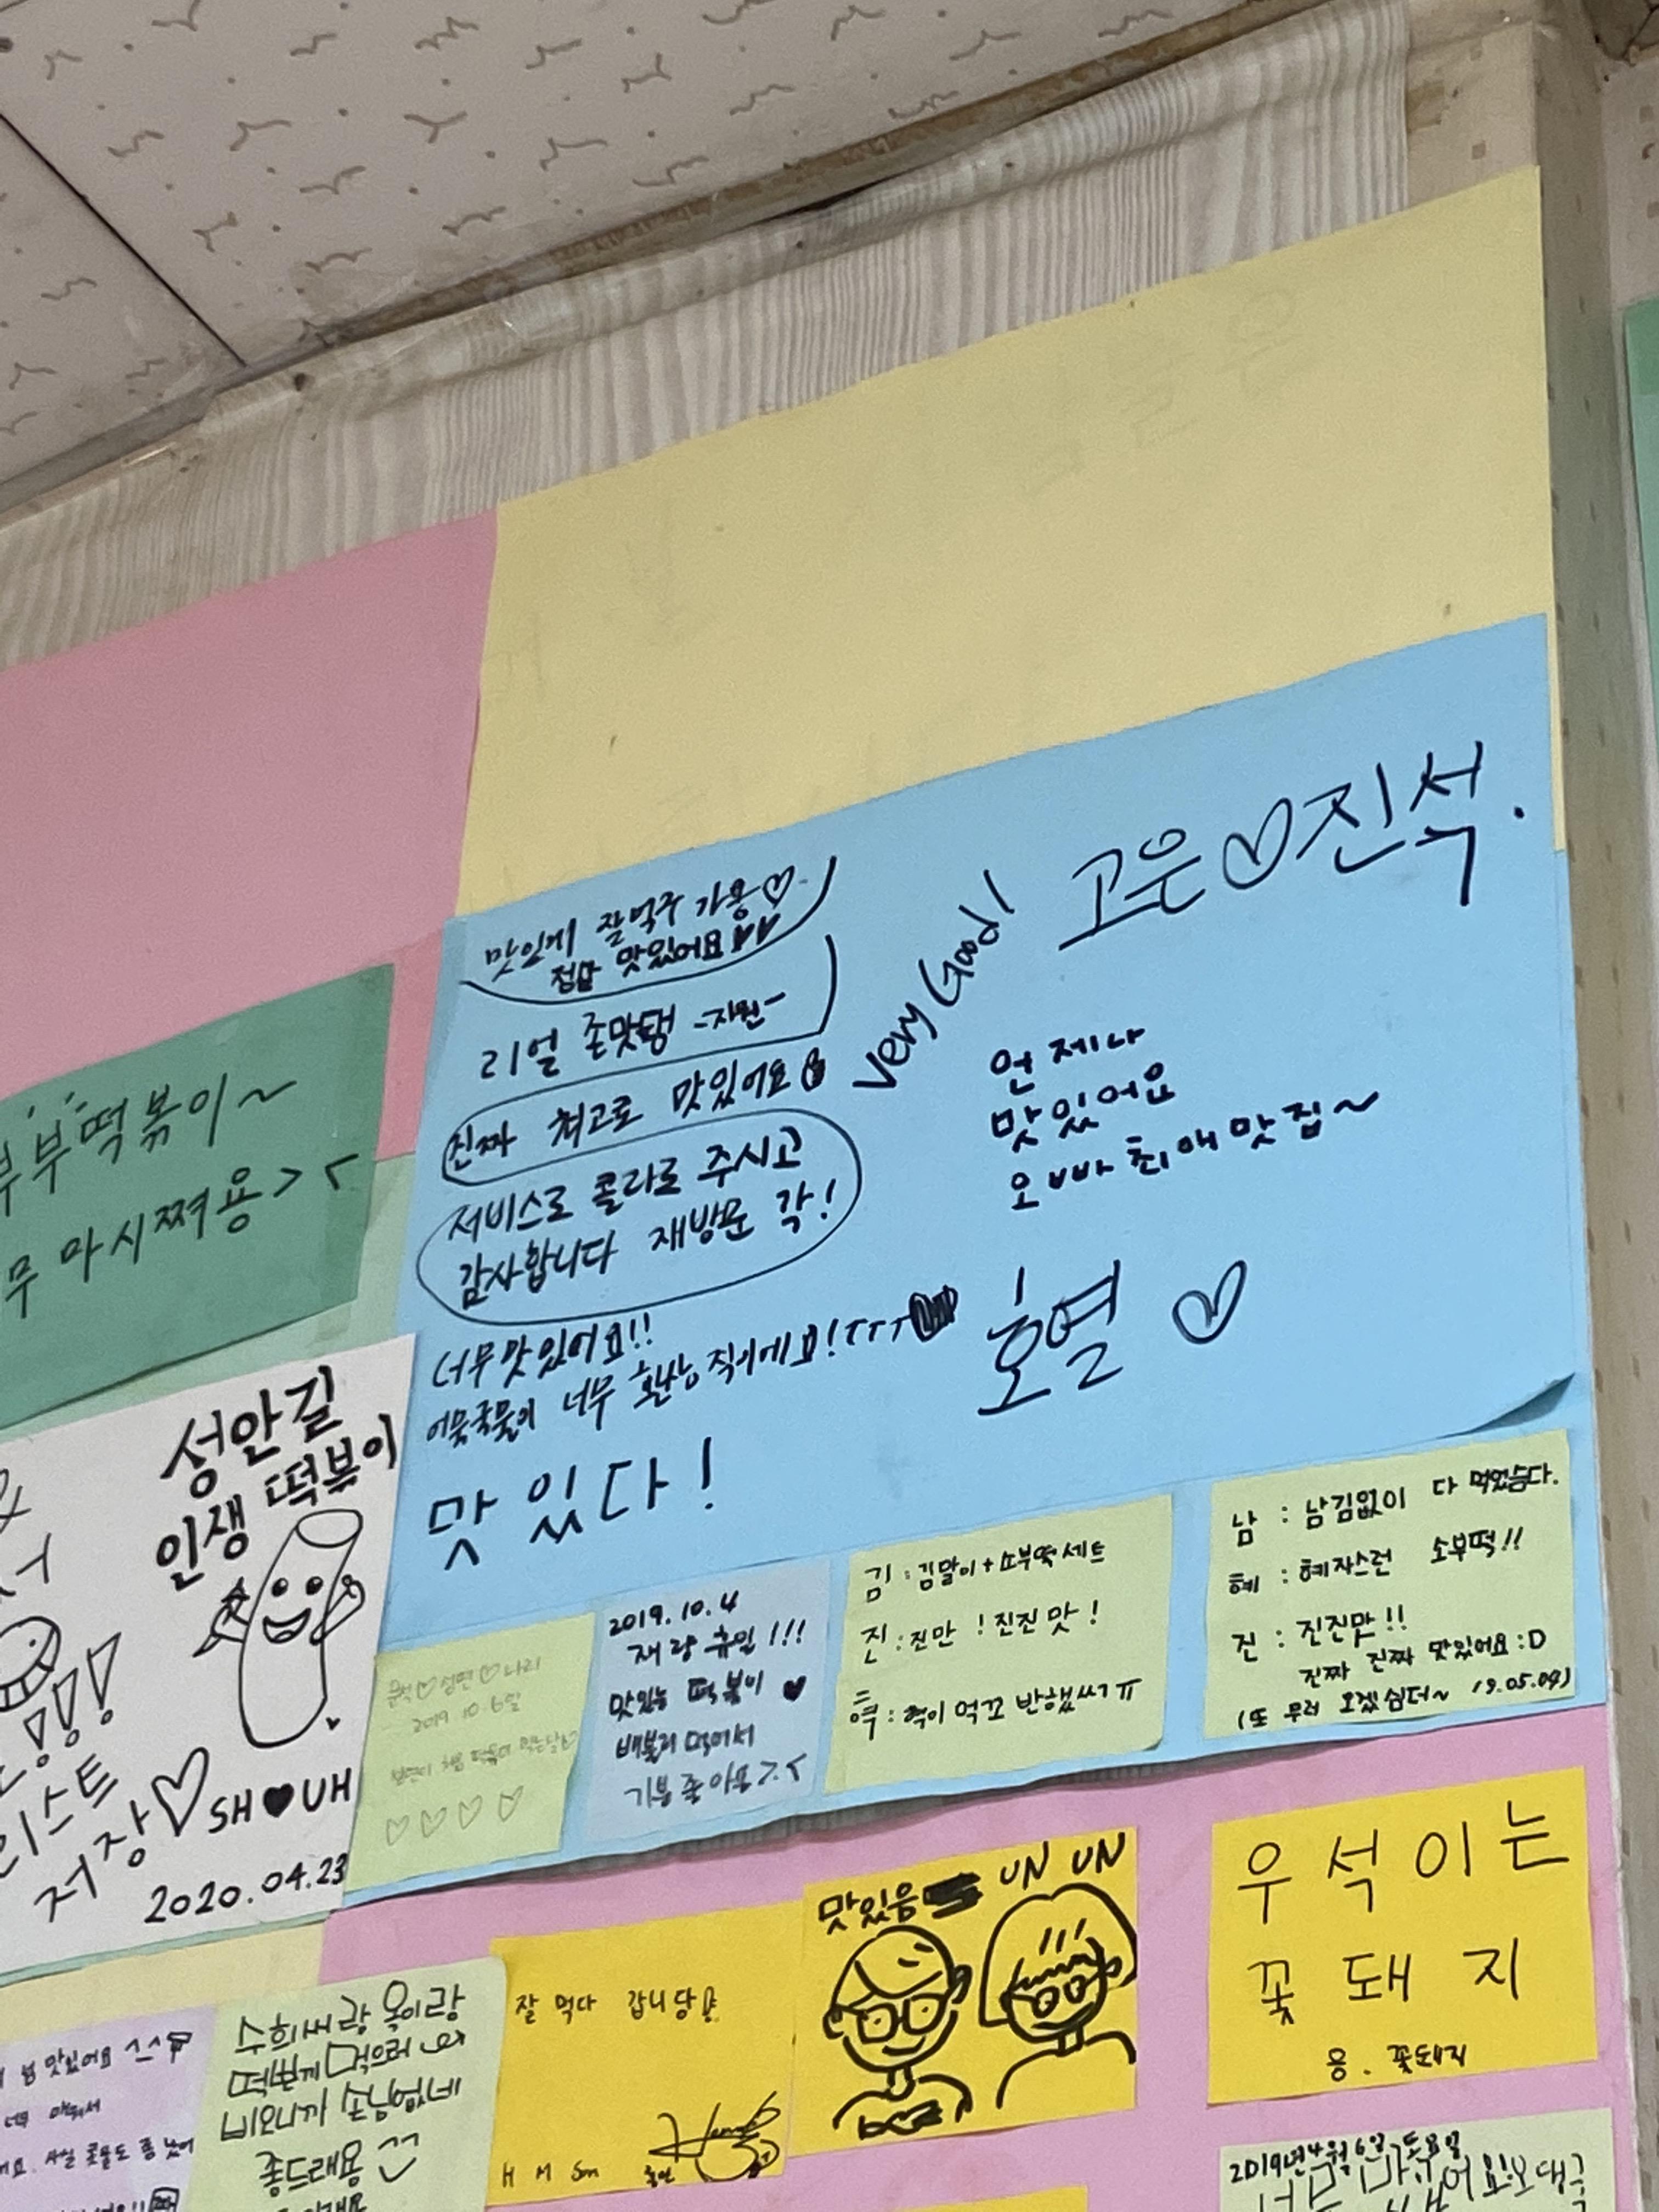 고은♡진석.
Very Good!
맛있게 잘먹구 가용♡
맛있어요
리얼 존맛탱 -지원-
진짜 최고로 맛있어요
서비스로 콜라로 주시고
감사합니다 재방문 각!
언제나
맛있어요
오빠 최애맛집~
너무맛있어요!!
어묵국물이 너무 환상적이에요!ㅜㅜㅜ
호열 ♡
맛있다!
부부떡볶이~
무 마시쪄용><
성안길
인생 떡볶이
리스트
저장♡SH♥UH
2020.04.23
2019 10 6일
♡♡♡♡
2019.10.4
재랑 휴일!!!
맛있는 떡볶이 ♥
배불리 먹어서
기분 좋아용><
김:김말이+쏘부떡세트
진:진만!진진맛!
혁:혁이 먹고 반했쓰ㅠ
남:남김없이 다 먹었슴다.
혜:혜자스런 소부떡!!
진:진진맛!!
진짜 진짜 맛있어요:D
(또 무러 오겠심더~ 19.05.09)
맛있음 UN UN
우석이는
꽃돼지
응. 꽃돼지
잘 먹다 갑니당
H M Son
수희씨랑 옥이랑
먹으러
비오니까 손님없네
좋드래용
넘 맛있어요 ^-^
너무 매워서
2019년 4월 6일 토요일